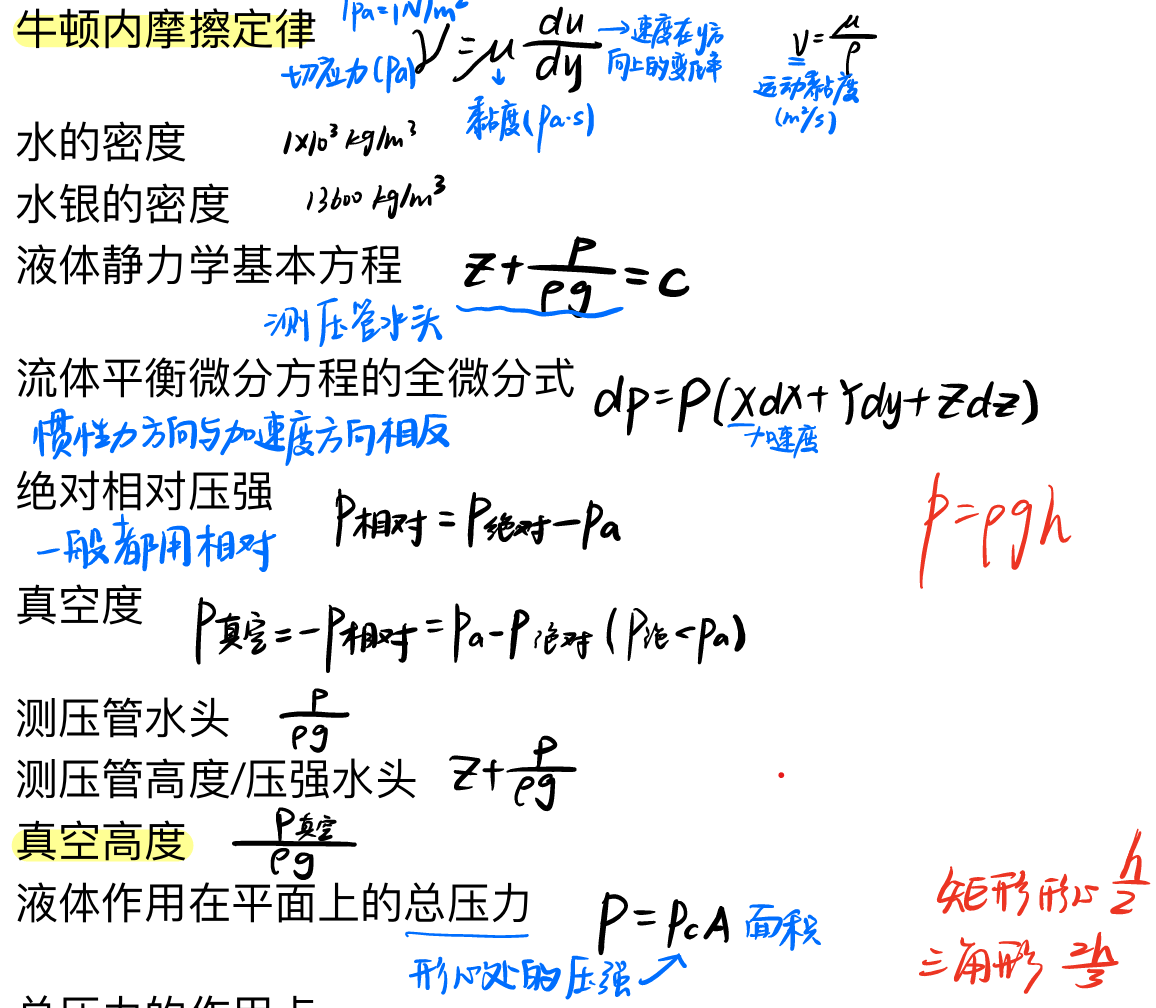 1pa=1N/m²
牛顿内摩擦定律
切应力(Pa) γ=μ du/dy →速度在y方向上的变化率
↓
黏度(pa·s)
ν=μ/ρ
运动黏度
(m²/s)
水的密度 1×10³ kg/m³
水银的密度 13600 kg/m³
液体静力学基本方程 z+p/ρg=c
测压管水头
流体平衡微分方程的全微分式 dp=ρ(Xdx+Ydy+Zdz)
惯性力方向与加速度方向相反 加速度
绝对相对压强 P相对=P绝对-Pa
一般都用相对
p=ρgh
真空度 P真空=-P相对=Pa-P绝对(P绝<Pa)
测压管水头 p/ρg
测压管高度/压强水头 z+p/ρg
真空高度 P真空/ρg
液体作用在平面上的总压力 P=PcA 面积
形心处的压强↗
矩形形心 h/2
三角形 2h/3